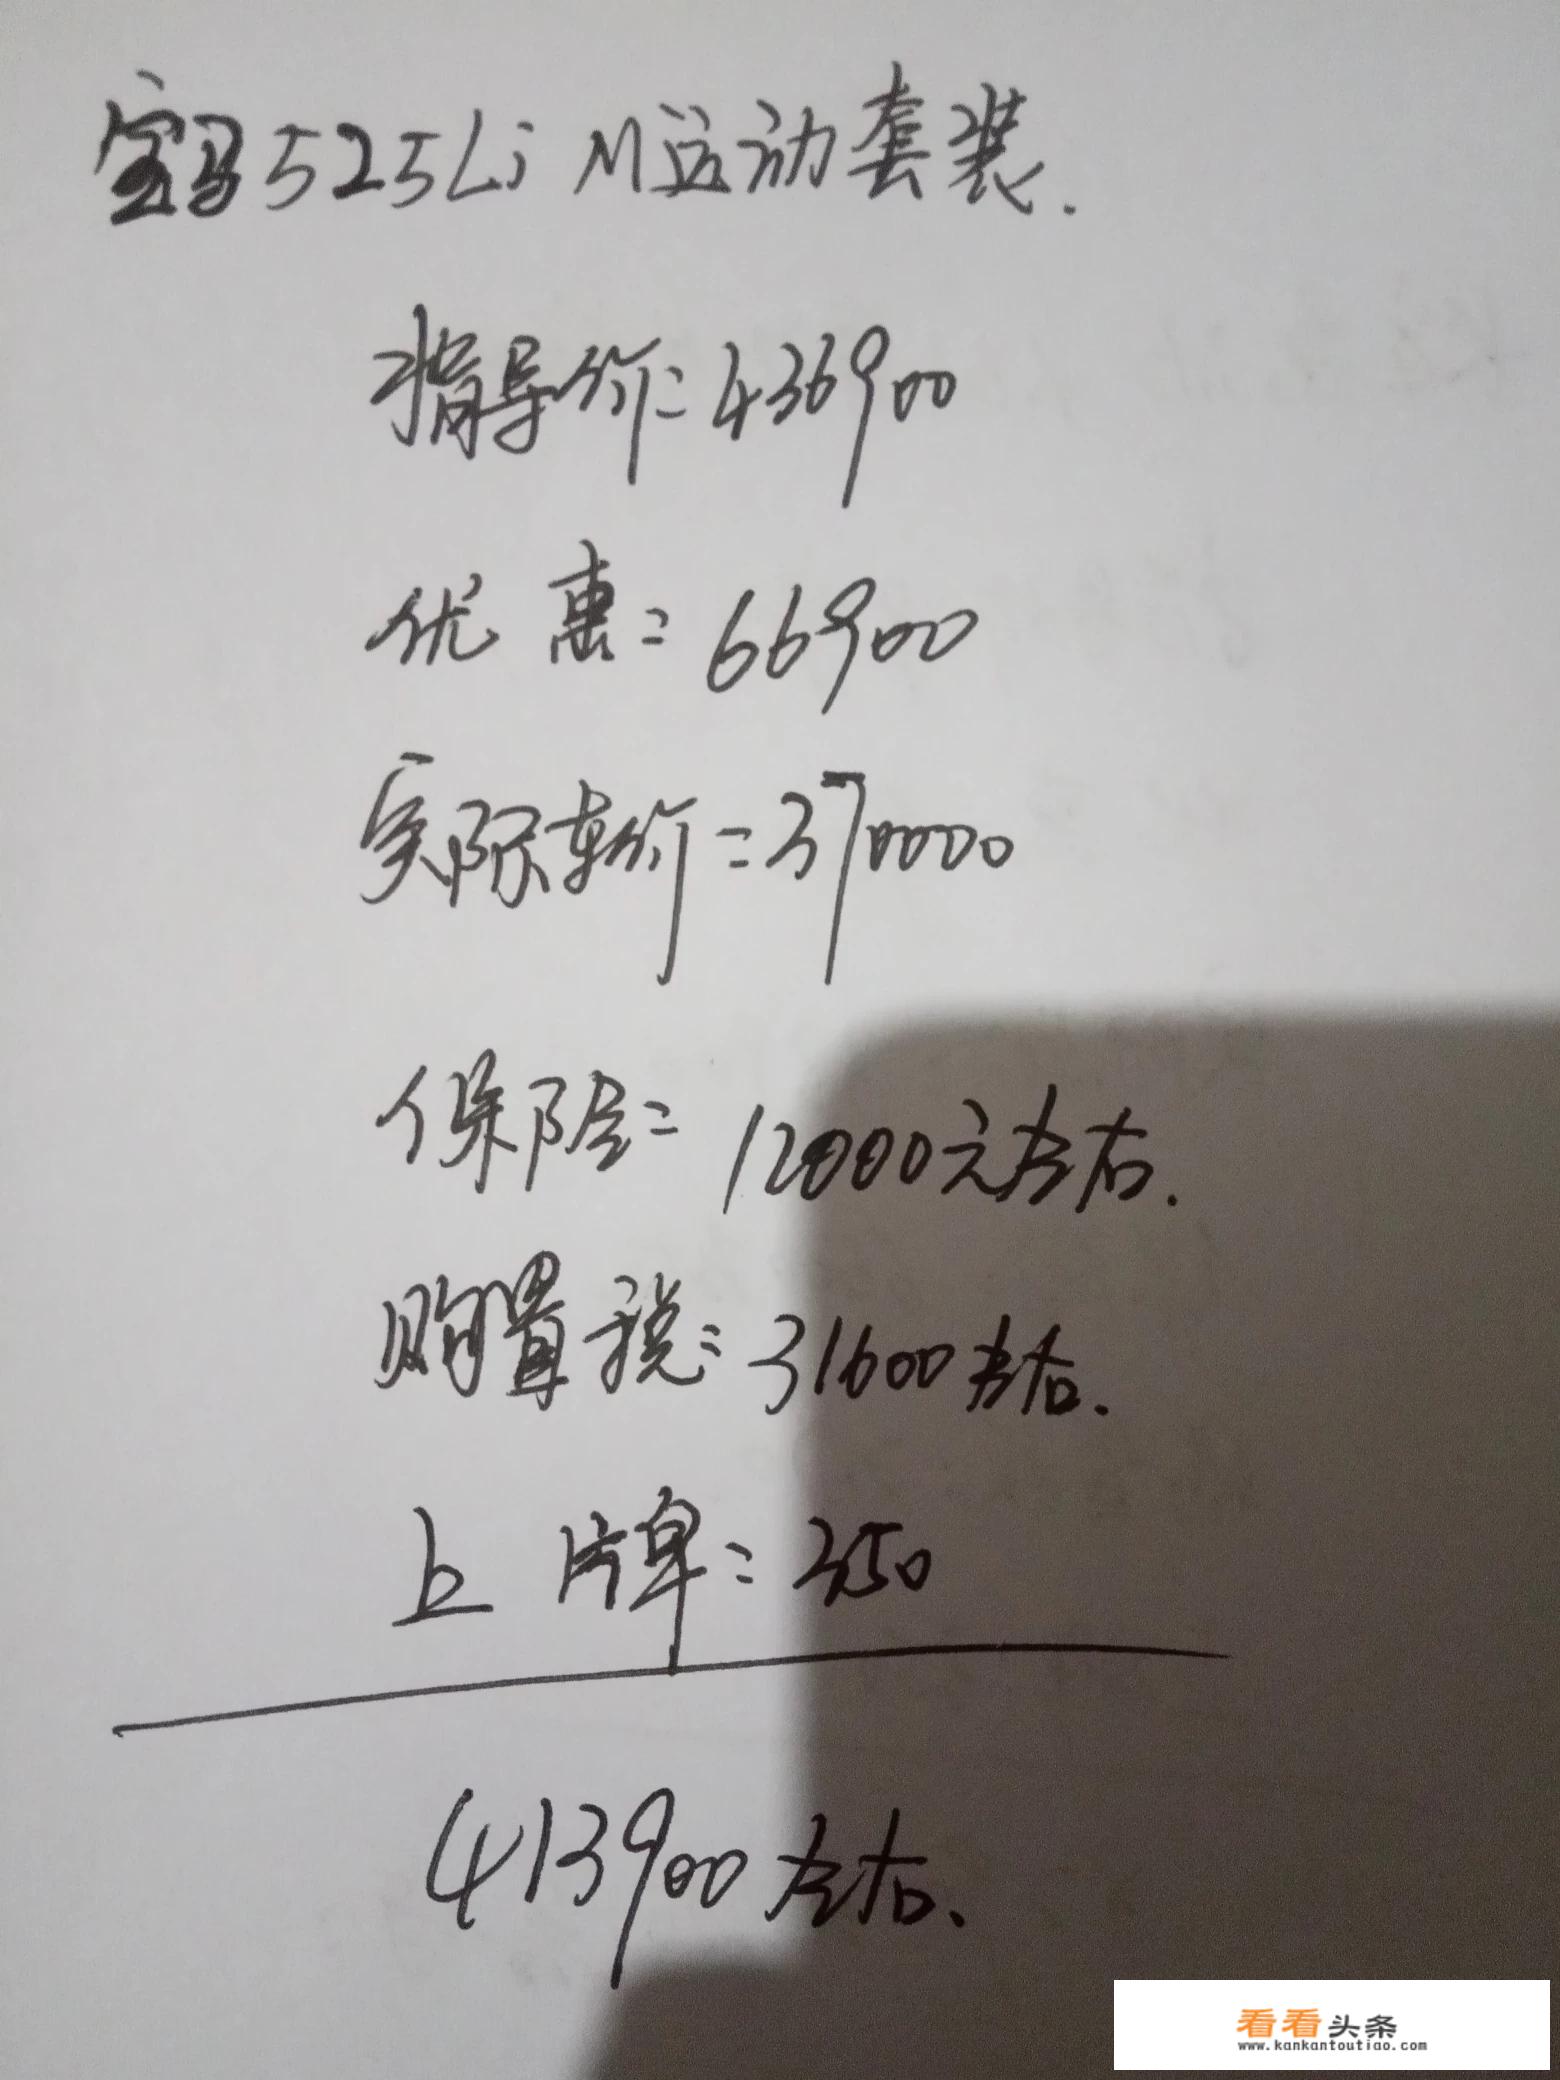 宝马525Li M运动套装.
指导价=436900
优惠=66900
实际车价=370000
保险=12000元左右.
购置税=31600左右.
上牌=350
413900左右.
看看头条
www.kankantoutiao.com